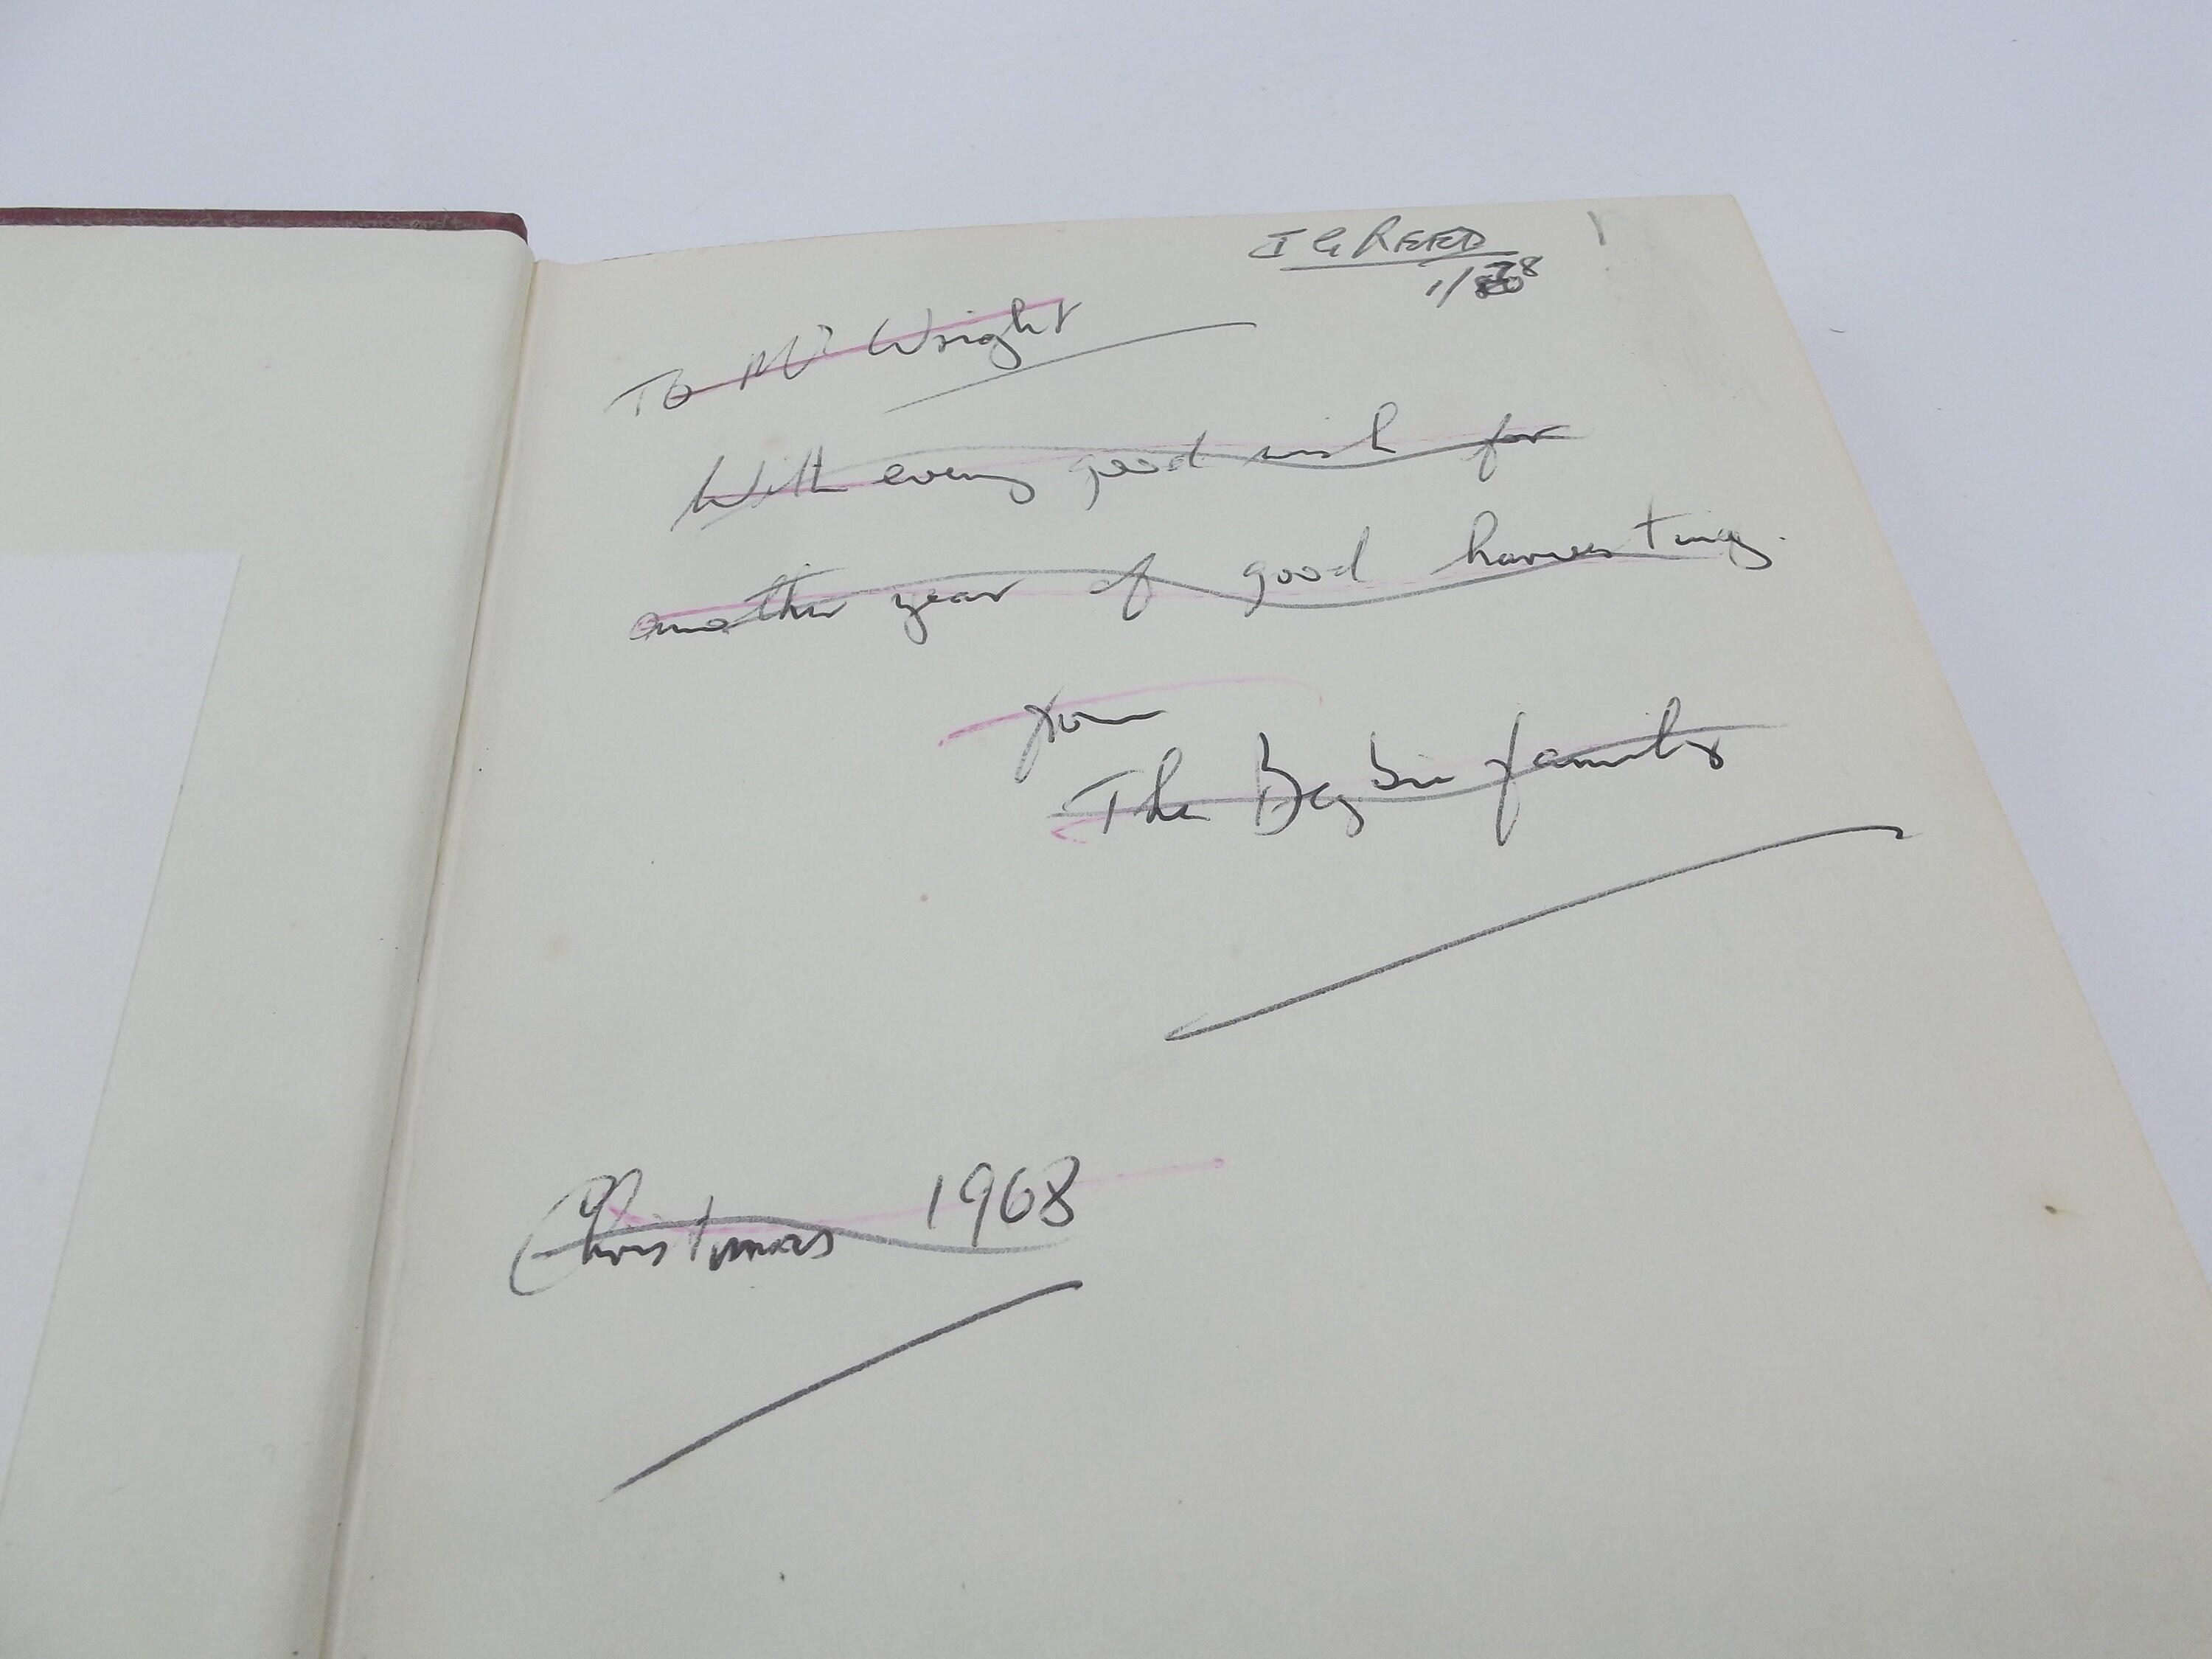 I G REED
To Mr Wright
With every good wish for
another year of good harvesting.
from
The family
Christmas 1968